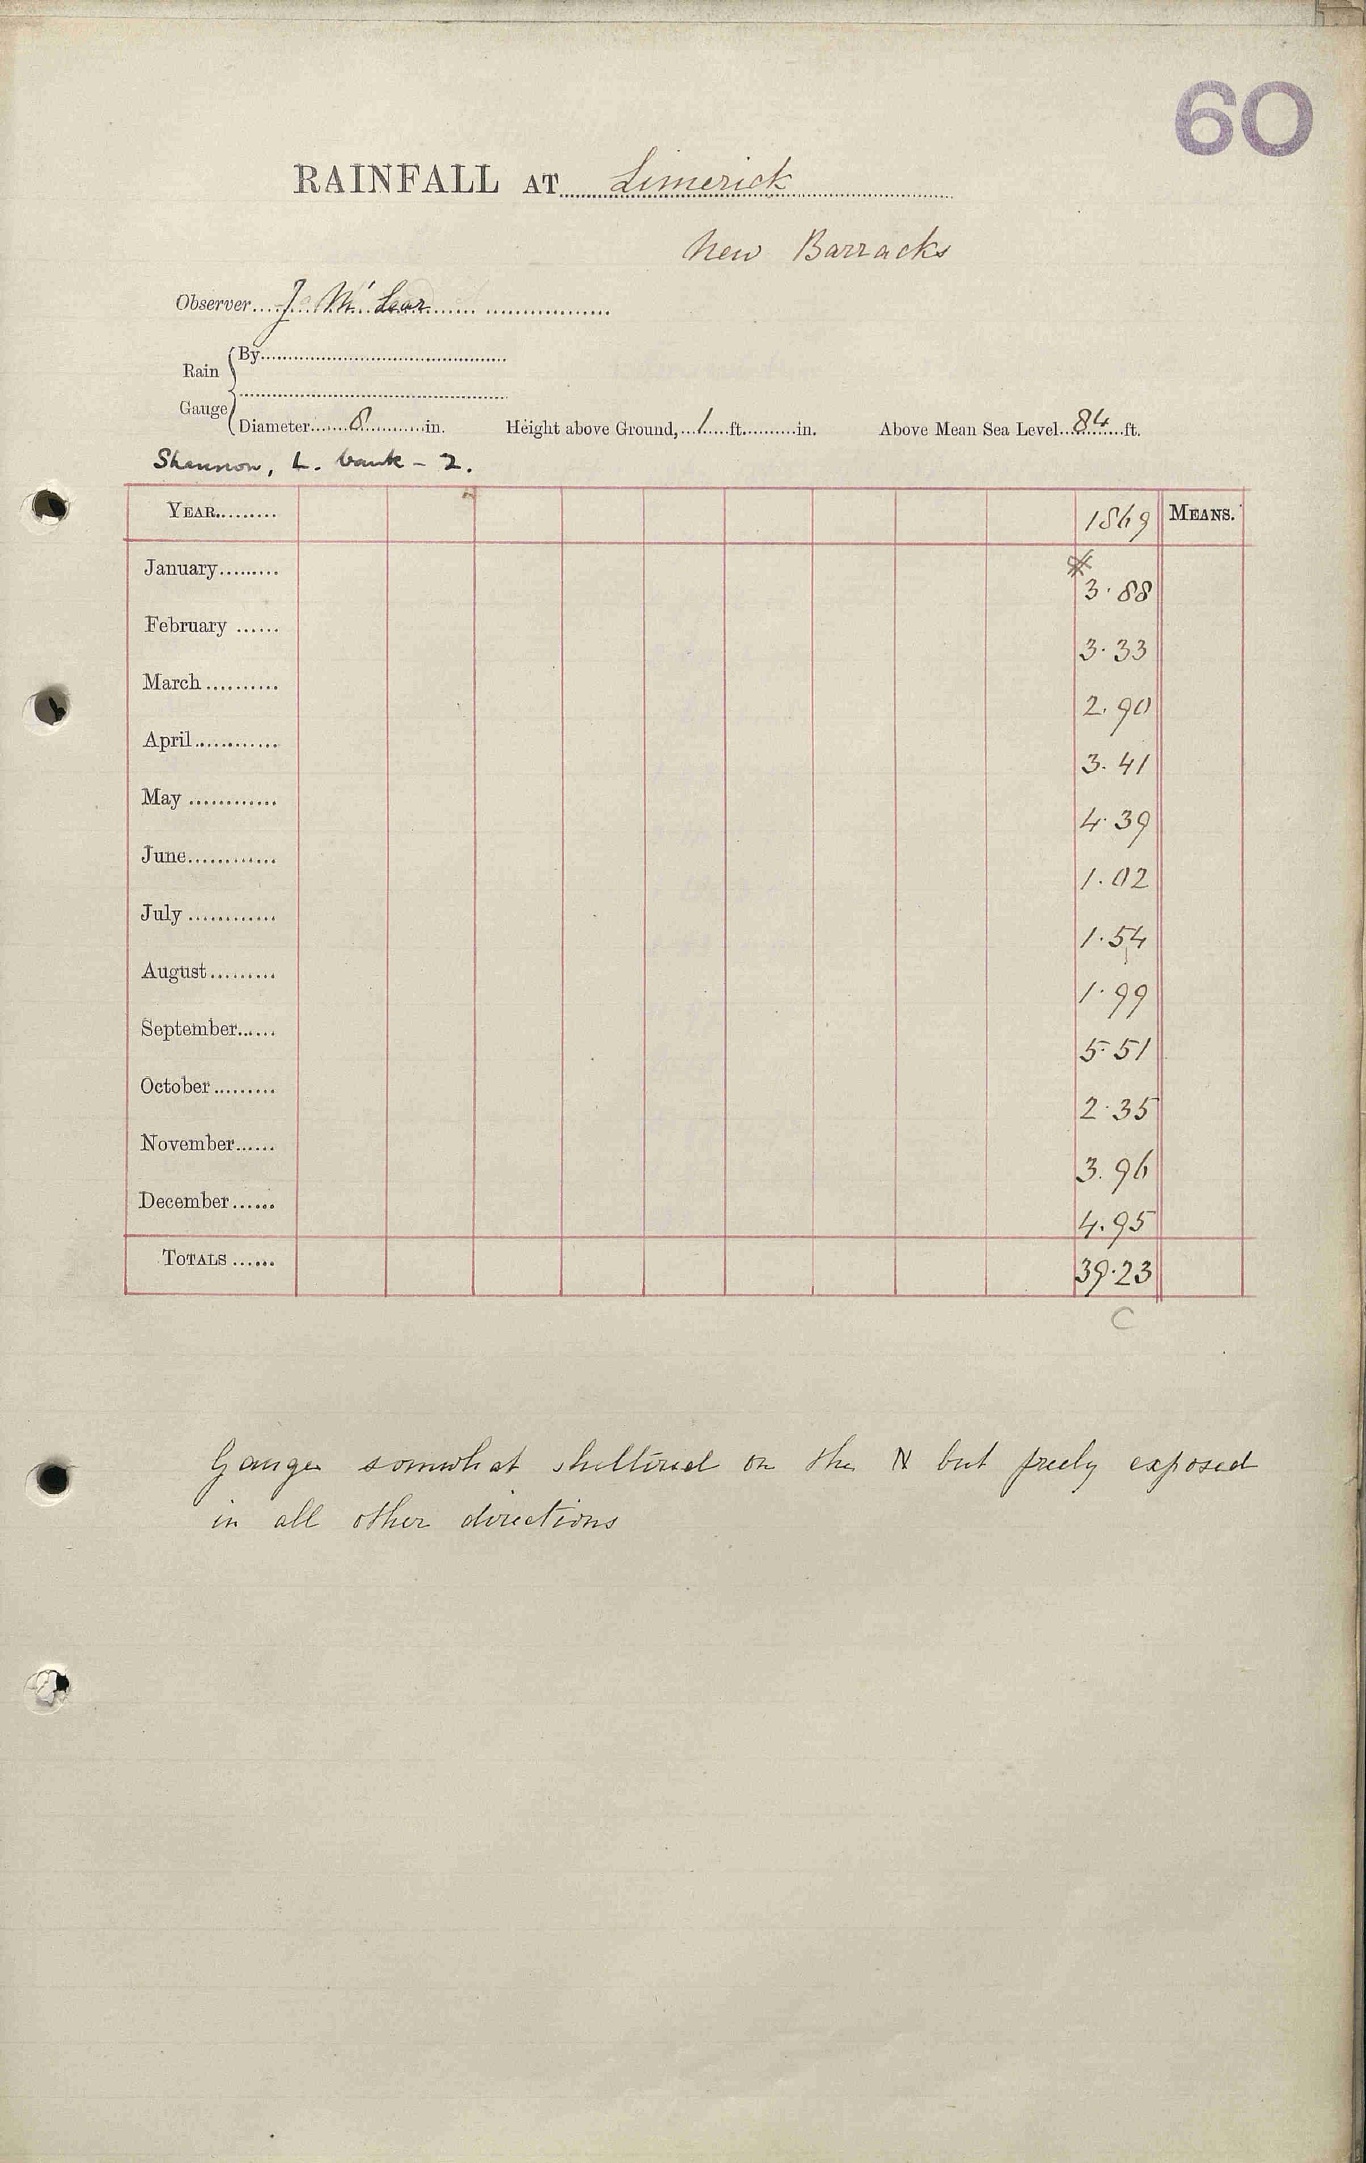 60
RAINFALL AT Limerick
New Barracks
Observer J McLear
Rain Gauge
By
Diameter 8 in. Height above Ground, 1 ft. in. Above Mean Sea Level 84 ft.
Shannon, L. bank - 2.
YEAR 1869 MEANS.
January * 3.88
February 3.33
March 2.90
April 3.41
May 4.39
June 1.02
July 1.54
August 1.99
September 5.51
October 2.35
November 3.96
December 4.95
TOTALS 39.23
C
Gauge somewhat sheltered on the N but freely exposed
in all other directions